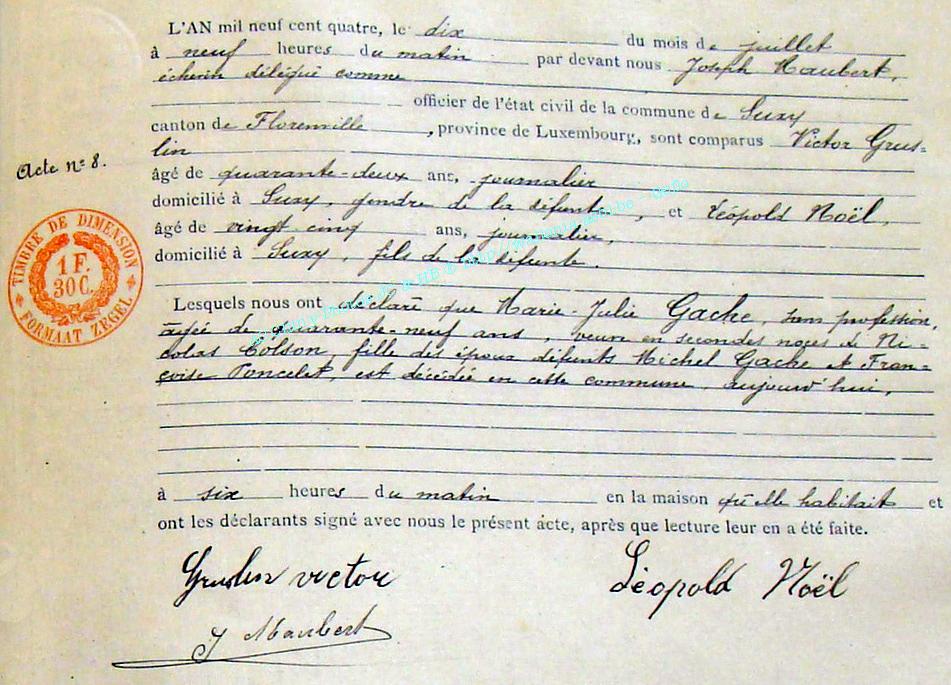 L'AN mil neuf cent quatre, le dix du mois de juillet
à neuf heures du matin par devant nous Joseph Maubert,
échevin délégué comme
officier de l'état civil de la commune de Suxy
canton de Florenville, province de Luxembourg, sont comparus Victor Grus=
lin
Acte n° 8.
âgé de quarante-deux ans, journalier
domicilié à Suxy, gendre de la défunte, et Léopold Noël,
âgé de vingt cinq ans, journalier,
domicilié à Suxy, fils de la défunte.
TIMBRE DE DIMENSION
1 F.
30 C.
FORMAAT ZEGEL
Lesquels nous ont déclaré que Marie-Julie Gache, sans profession,
âgée de quarante-neuf ans, veuve en secondes noces de Ni=
colas Colson, fille des époux défunts Michel Gache et Fran=
çoise Poncelet, est décédée en cette commune, aujourd'hui,
à six heures du matin en la maison qu'elle habitait et
ont les déclarants signé avec nous le présent acte, après que lecture leur en a été faite.
Gruslin victor
Léopold Noël
J Maubert